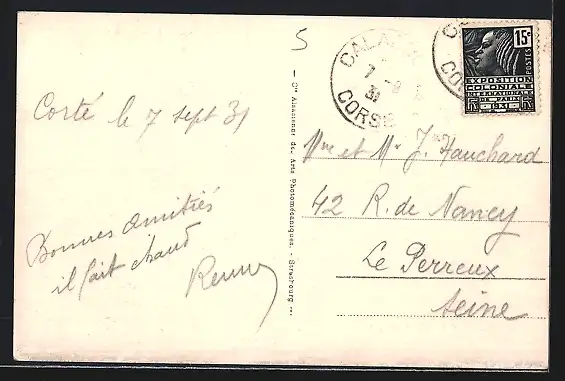 5
Corté le 7 sept 31
Bonnes amitiés
il fait chaud
— Cie Alsacienne des Arts Photomécaniques. - Strasbourg —
CORSE
7 -9
31
15c
POSTES
EXPOSITION
COLONIALE
INTERNATIONALE
DE PARIS
1931
Mme et Mr J. Hauchard
42 R. de Nancy
Le Perreux
Seine